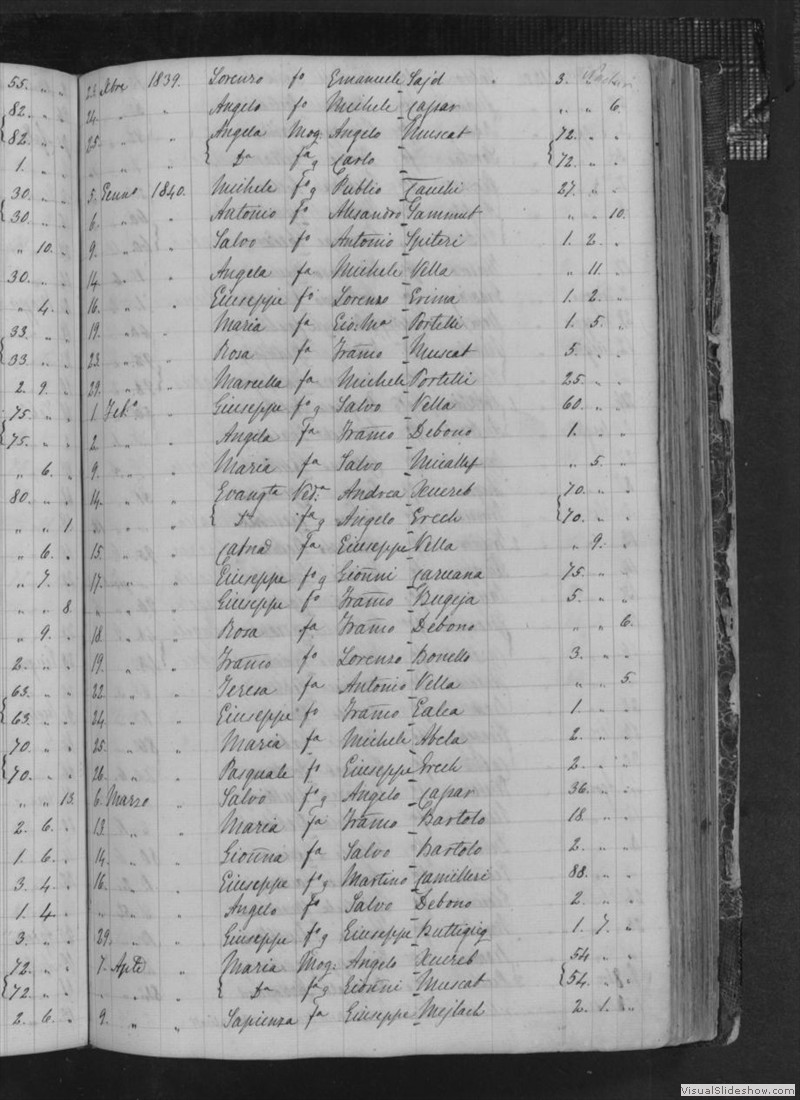 55. „ „ 23 Xbre 1839. Lorenzo fo Emanuele Sajd 3.
82. „ „ 24. „ „ Angelo fo Michele Capar „ „ 6.
82. „ „ 25. „ „ Angela Mog. Angelo Muscat 72. „ „
1. „ „ Da fa g Carlo 72. „ „
30. „ „ 5. Genno 1840. Michele fo g Publio 27. „ „
30. „ „ 6. „ „ Antonio fo Alesandro Gammut „ „ 10.
„ 10. „ 9. „ „ Salvo fo Antonio Spiteri 1. 2. „
30. „ „ 14. „ „ Angela fa Michele Vella „ 11. „
„ 4. „ 16. „ „ Giuseppe fo Lorenzo Erima 1. 2. „
33. „ „ 19. „ „ Maria fa Gio. Ma Portelli 1. 5. „
33. „ „ 23. „ „ Rosa fa Framo Muscat 5. „ „
2. 9. „ 29. „ „ Marcella fa Michele Portelli 25. „ „
75. „ „ 1. Febo „ Giuseppe fo g Salvo Vella 60. „ „
75. „ „ 2. „ „ Angela fa Framo Debono 1. „ „
„ 6. „ 9. „ „ Maria fa Salvo Micallef „ 5. „
80. „ „ 14. „ „ Evangta Veda Andrea Xuereb 70. „ „
„ „ 1. „ „ „ Da fa g Angelo Grech 70. „ „
„ 6. „ 15. „ „ Catna fa Giuseppe Vella „ 9. „
„ 7. „ 17. „ „ Giuseppe fo g Gionni Caruana 75. „ „
„ „ 8. „ „ „ Giuseppe fo Framo Bugeja 5. „ „
„ 9. „ 18. „ „ Rosa fa Framo Debono „ „ 6.
2. „ „ 19. „ „ Framo fo Lorenzo Bonello 3. „ „
63. „ „ 22. „ „ Teresa fa Antonio Vella „ „ 5.
63. „ „ 24. „ „ Giuseppe fo Framo Galea 1. „ „
70. „ „ 25. „ „ Maria fa Michele Abela 2. „ „
70. „ „ 26. „ „ Pasquale fo Giuseppe Grech 2. „ „
„ „ 13. 6. Marzo „ Salvo fo g Angelo Capar 36. „ „
2. 6. „ 13. „ „ Maria fa Framo Bartolo 18. „ „
1. 6. „ 14. „ „ Gionna fa Salvo Bartolo 2. „ „
3. 4. „ 16. „ „ Giuseppe fo g Martino Camilleri 88. „ „
1. 4. „ „ „ „ Angelo fo Salvo Debono 2. „ „
3. „ „ 29. „ „ Giuseppe fo g Giuseppe Buttigieg 1. 7. „
72. „ „ 7. Aple „ Maria Mog. Angelo Xuereb 54 „ „
72. „ „ „ „ „ Da fa g Gionni Muscat 54. „ „
2. 6. „ 9. „ „ Sapienza fa Giuseppe Mejlach 2. 1. „
VisualSlideshow.com